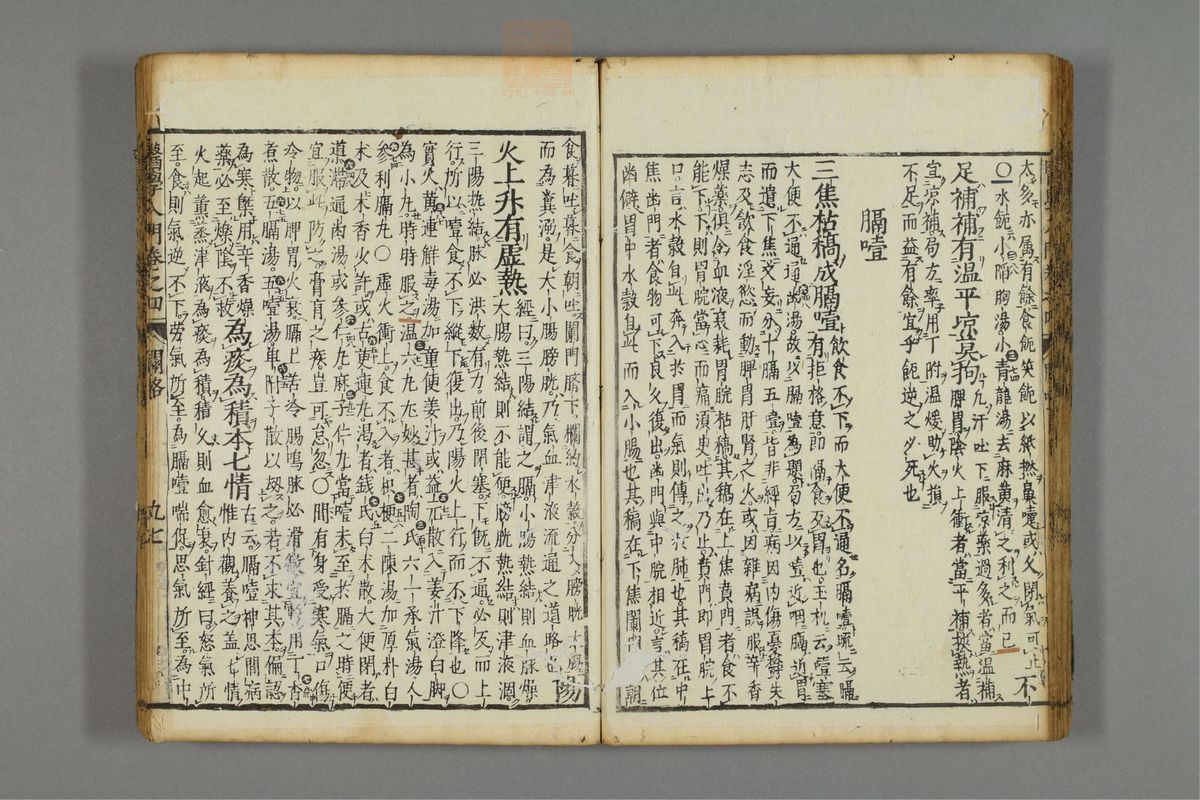 太多亦属有餘食鉈笑鉈以紙撚鼻嚏或久閉氣可止不
〇水鉈小陷胸湯小青龍湯去麻黄清之利之而已
足補補有温平凉莫拘凡汗吐下服凉藥過多者當温補
宜凉補局方率用丁附温煖助火損脾胃陰火上衝者當平補挟熱者
不足而益有餘宜乎鉈逆之多死也
膈噎
三焦枯槁成膈噎飲食不下而大便不通名膈噎疏云膈
有拒格意即膈食反胃也玉机云噎塞
大便不通通幽湯故以膈噎為題局方以噎近咽膈近胃
而遺下焦又妄分十膈五噎皆非經旨病因内傷憂鬱失
志及飲食淫慾而動脾胃肝腎之火或因雜病誤服辛香
燥藥俱令血液衰耗胃脘枯槁其槁在上焦賁門者食不
能下下則胃脘當心而痛須臾吐出乃止賁門即胃脘上
口言水穀自此奔入於胃而氣則傳之於肺也其槁在中
焦幽門者食物可下良久復出幽門與中脘相近言其位
幽僻胃中水穀自此而入小腸也其槁在下焦闌門朝
食暮吐暮食朝吐闌門臍下攔約水穀分入膀胱大腸
而為糞溺是大小腸膀胱乃氣血津液流通之道路也陽
火上升有虚熱經曰三陽結謂之膈小腸熱結則血脉燥
大腸熱結則不能便膀胱熱結則津液涸
三陽熱結脉必洪数有力前後閉塞下既不通必反而上
行所以噎食不下縱下復出乃陽火上行而不下降也〇
實火黄連解毒湯加童便姜汁或益元散入姜汁澄白脚
為小丸時時服之温六丸尤妙甚者陶氏六一承氣湯人
参利膈丸〇虚火衝上食不入者枳梗二陳湯加厚朴白
术及木香少許或古更連丸渴者錢氏白术散大便閉者
導滯通幽湯或参仁丸麻子仁丸當噎未至於膈之時便
宜服此防之膏肓之疾豈可怠忽〇間有身受寒氣口傷
冷物以脾胃火衰膈上苦冷腸鳴脉必滑微宜暫用丁香
煮散五膈湯五噎湯單附子散以刼之若不求其本偏認
為寒槩用辛香燥為痰為積本七情古云膈噎神思間病
藥必至爍陰不惟内觀養之盖七情
火起薰蒸津液為痰為積積久則血愈衰針經曰怒氣所
至食則氣逆不下勞氣所至為膈噎喘促思氣所至為中
醫學入門卷之四 關格 九七